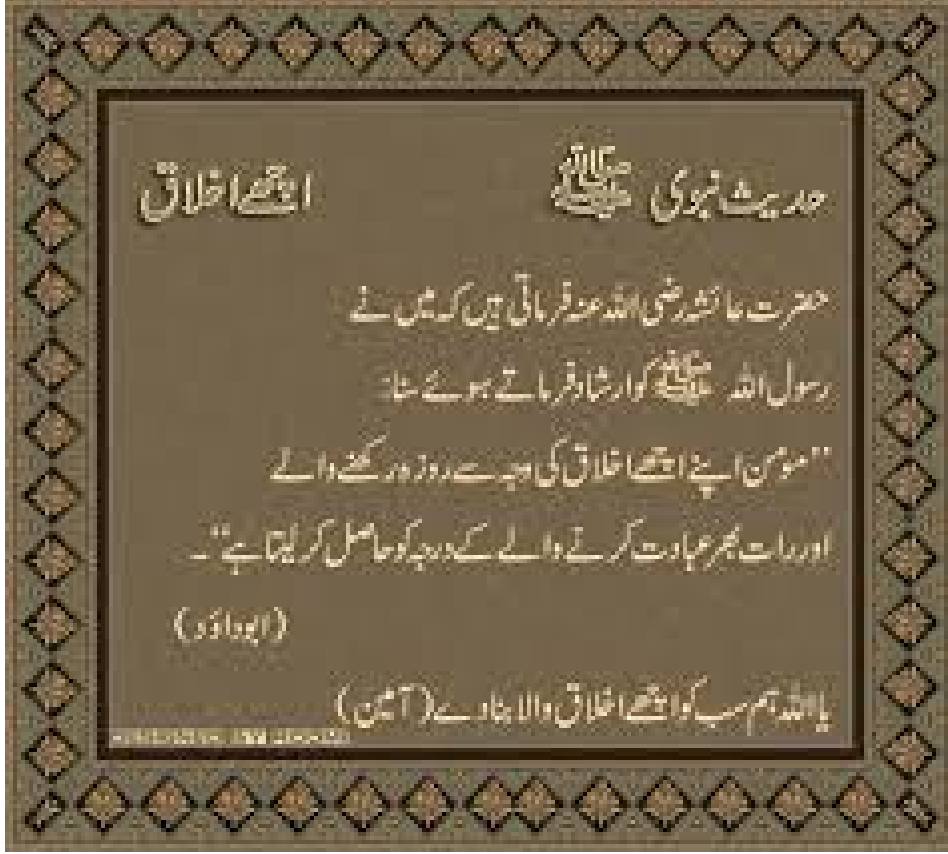 حدیث نبوی ﷺ اچھے اخلاق
حضرت عائشہ رضی اللہ عنہ فرماتی ہیں کہ میں نے
رسول اللہ ﷺ کو ارشاد فرماتے ہوئے سنا:
"مومن اپنے اچھے اخلاق کی وجہ سے روزہ رکھنے والے
اور رات بھر عبادت کرنے والے کے درجہ کو حاصل کر لیتا ہے"۔
(ابوداؤد)
یا اللہ ہم سب کو اچھے اخلاق والا بنا دے (آمین)